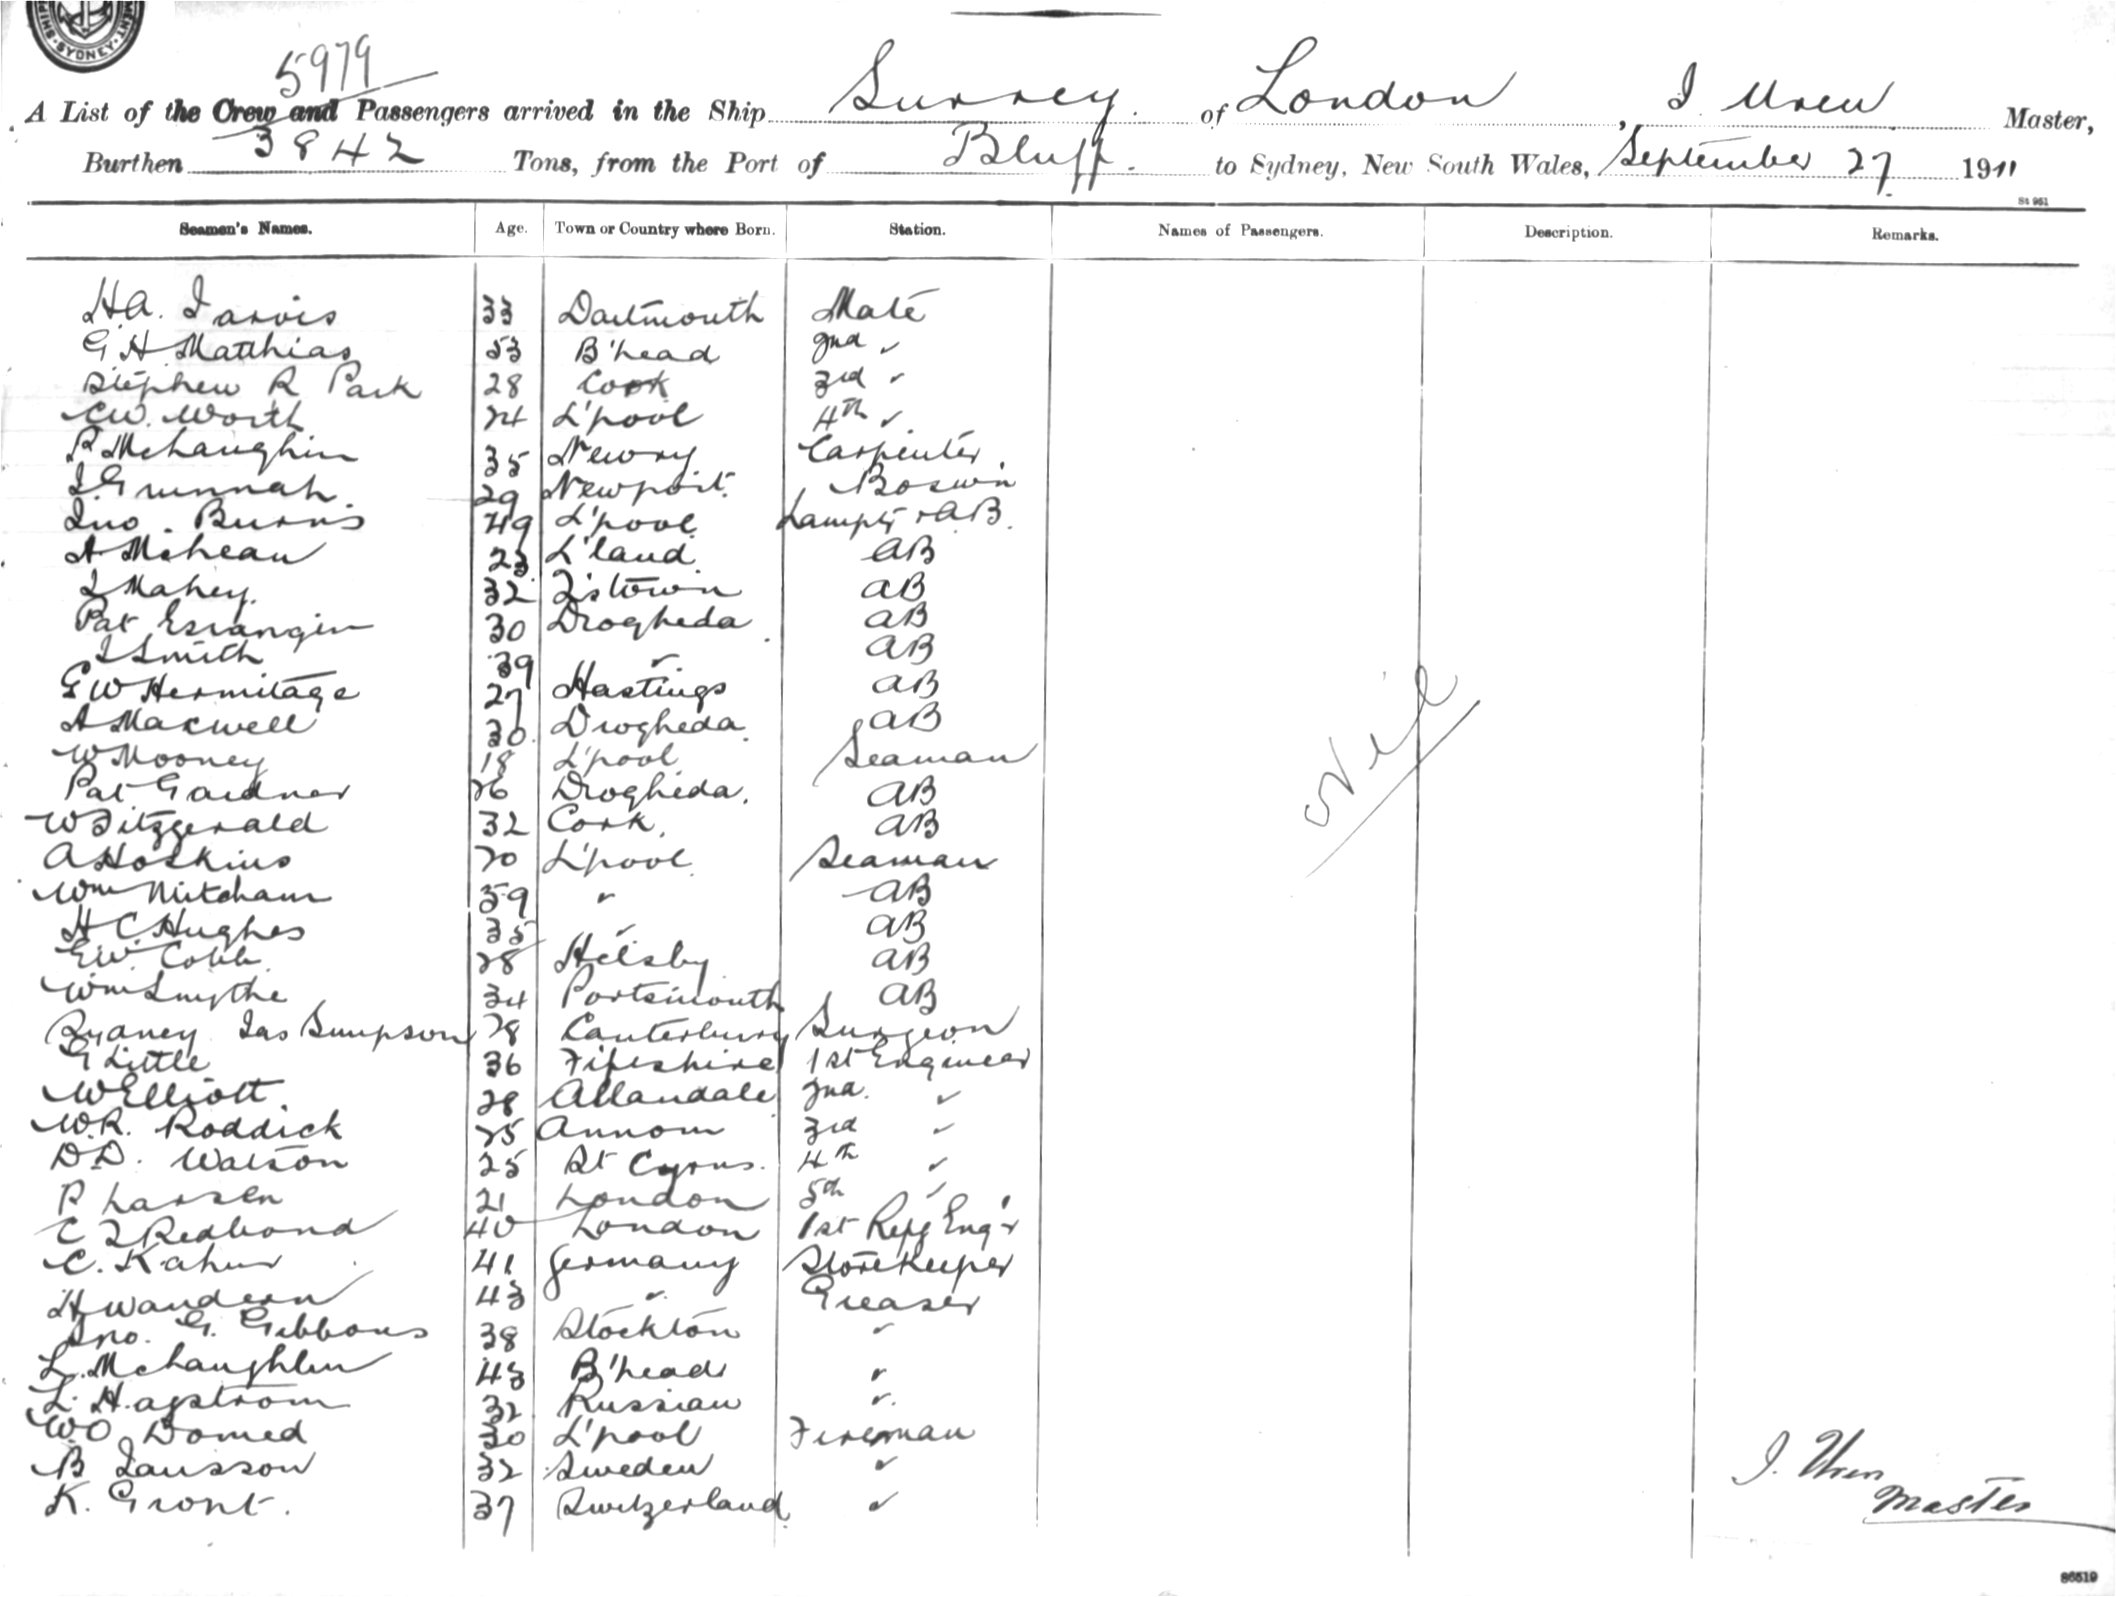 SYDNEY
5979
A List of the Crew and Passengers arrived in the Ship Surrey of London, J Uren Master,
Burthen 3842 Tons, from the Port of Bluff. to Sydney, New South Wales, September 27 1911
St 961
Seamen's Names. Age. Town or Country where Born. Station. Names of Passengers. Description. Remarks.
H.A. Jarvis 33 Dartmouth Mate
G H Matthias 53 B'head 2nd "
Stephen R Park 28 Cork 3rd "
C.W. Worth 24 L'pool 4th "
P McLaughlin 35 Newry Carpenter
J. Grunnah 29 Newport Bosw'n
Jno. Burns 49 L'pool Lamptr & AB.
A McLean 23 L'land AB
J Mahey. 32 Q'stown AB
Pat 30 Drogheda AB
J Smith 39 " AB
G W Hermitage 27 Hastings AB
A Maxwell 30 Drogheda. AB
W Mooney 18 L'pool Seaman
Pat Gardner 26 Drogheda. AB
W Fitzgerald 32 Cork. AB
A Hoskins 20 L'pool Seaman
Wm Mitcham 59 " AB
H C Hughes 35 " AB
E.W. Cobb 28 Helsby AB
Wm Smythe 34 Portsmouth AB
Jas Simpson 28 Canterbury Surgeon
G Little 36 Fifeshire 1st Engineer
W Elliott 28 Allandale 2nd. "
W.R. Roddick 25 Annom 3rd "
D.D. Watson 25 St Cyrus. 4th "
P Larsen 21 London 5th "
C J Redbond 40 London 1st Refg Eng'r
C. Kahur 41 Germany Storekeeper
H Wandern 43 " Greaser
Jno. G. Gibbons 38 Stockton "
L. McLaughlin 43 B'head "
L. Hagstrom 32 Russian "
W.O. Domed 30 L'pool Fireman
B Jansson 32 Sweden "
K. Gront. 37 Switzerland "
Nil
J. Uren
Master
86519